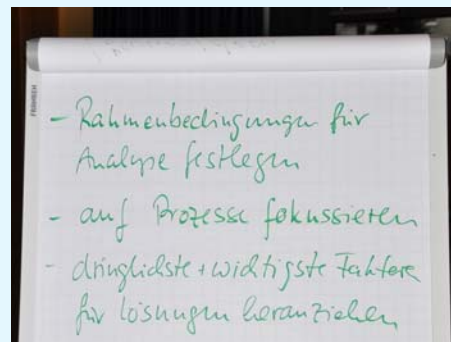 - Rahmenbedingungen für
Analyse festlegen
- auf Prozesse fokussieren
- dringlichste + wichtigste Faktore
für Lösungen heranziehen